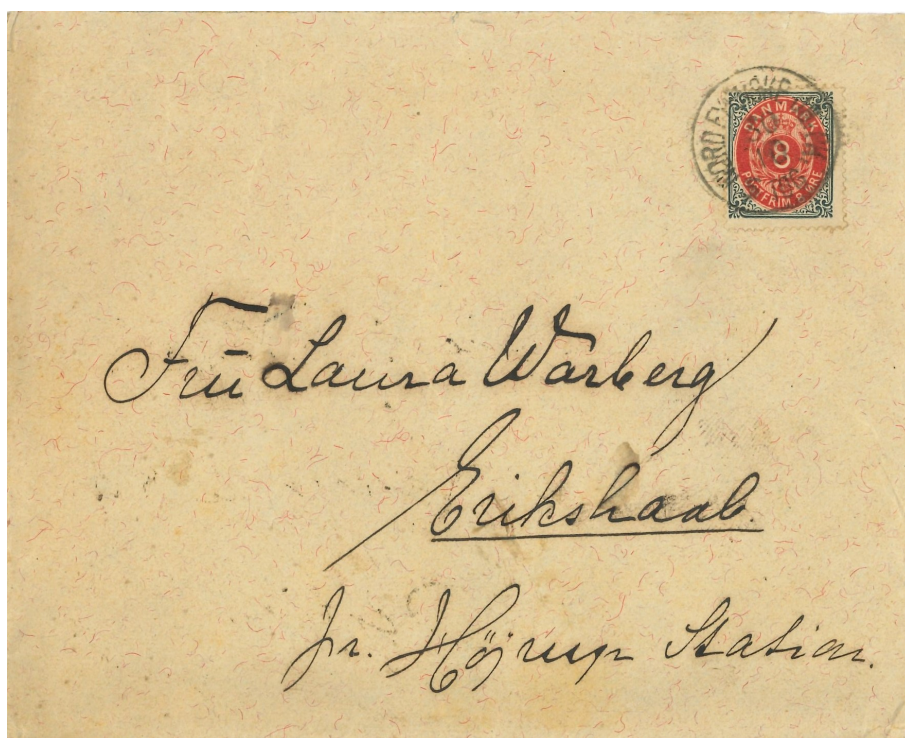 DANMARK
8
POSTFRIM. 8 ØRE
Fru Laura Warberg
Erikshaab.
pr. Højrup Station.